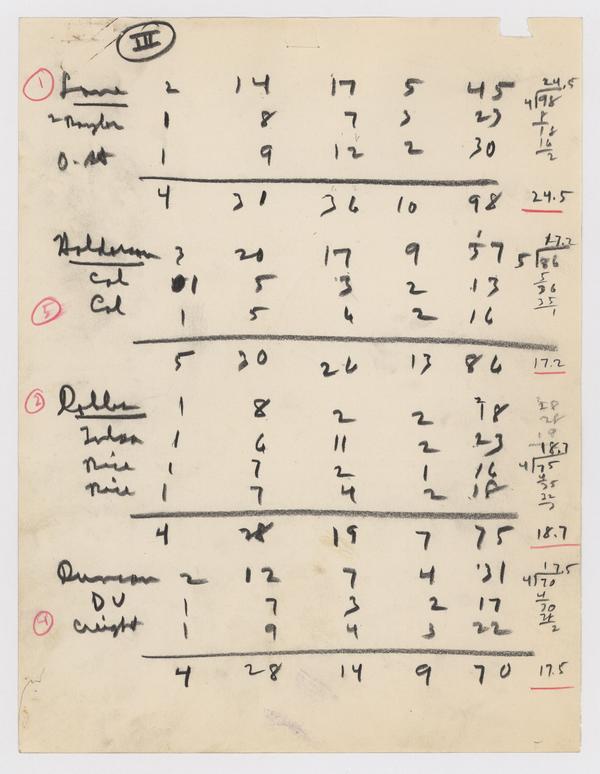 III
1 Lane 2 14 17 5 45
2 Baylor 1 8 7 3 23
O. St 1 9 12 2 30
4 31 36 10 98 24.5
24.5
4 98
8
18
16
2
Halderson 3 20 17 9 57
Col 1 5 3 2 13
5 Col 1 5 6 2 16
5 30 26 13 86 17.2
17.2
5 86
5
36
35
1
2 1 8 2 2 18
1 6 11 2 23
Rice 1 7 2 1 16
Rice 1 7 4 2 18
4 28 19 7 75 18.7
18.7
4 75
4
35
32
Duncan 2 12 7 4 31
DU 1 7 3 2 17
4 Creight 1 9 4 3 22
4 28 14 9 70 17.5
17.5
4 70
4
30
28
2